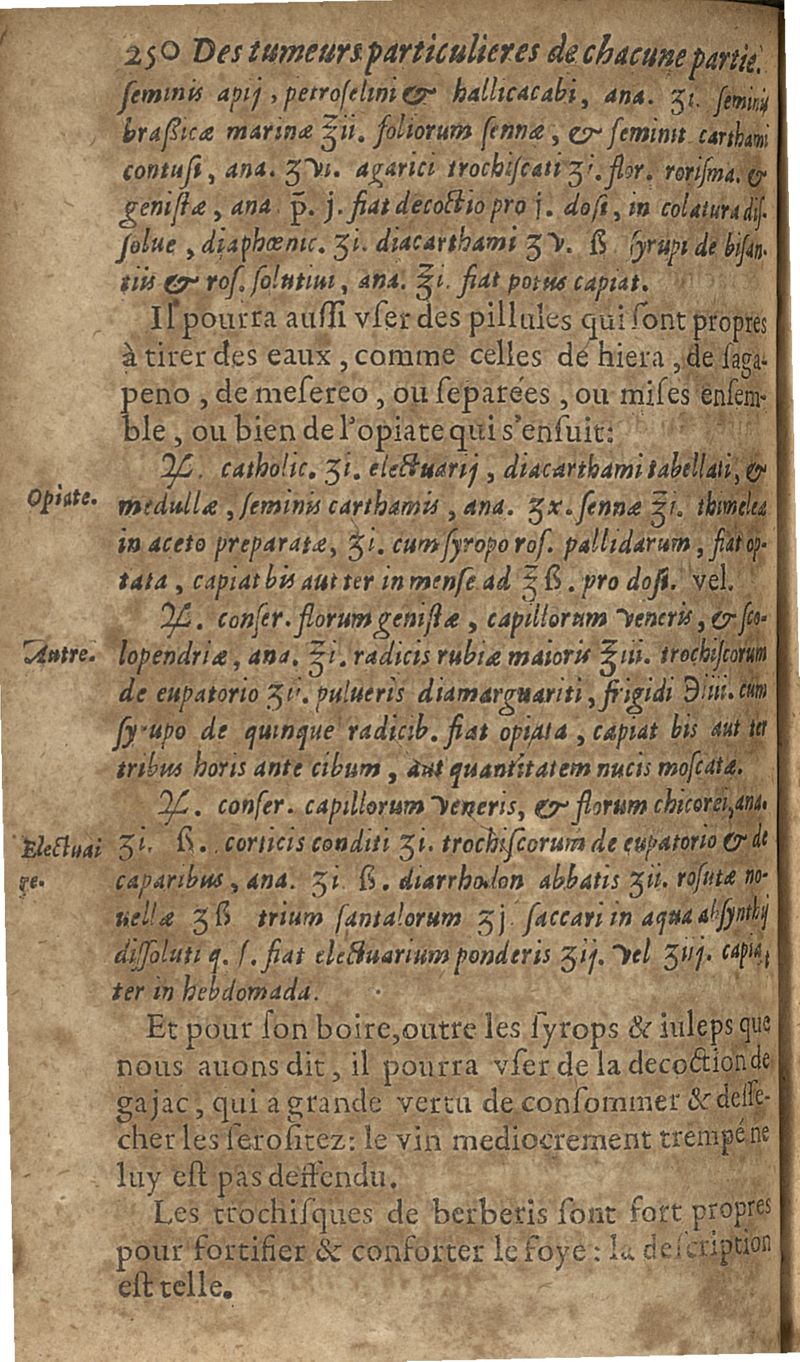 250 Des tumeurs particulieres de chacune partie.
ſeminis apij, petroſelini & hallicacabi, ana. ʒi. ſeminis
braßicæ marinæ ℥ii. foliorum ſennæ, & ſeminit carthami
contuſi, ana. ʒvi. agarici trochiſcati ʒi. flor. roriſma. &
geniſtæ, ana p̄. j. fiat decoctio pro j. doſi, in colatura diſ-
ſolue, diaphœnic. ʒi. diacarthami ʒv. ß ſyrupi de biſan-
tiis & roſ. ſolutiui, ana. ℥i. fiat potus capiat.
Il pourra auſſi vſer des pillules qui ſont propres
à tirer des eaux, comme celles de hiera, de ſaga-
peno, de meſereo, ou ſeparées, ou miſes enſem-
ble, ou bien de l'opiate qui s'enſuit:
Opiate.
℞. catholic. ʒi. electuarij, diacarthami tabellati, &
medullæ, ſeminis carthamis, ana. ʒx. ſennæ ℥i. thimelea
in aceto preparatæ, ʒi. cum ſyropo roſ. pallidarum, fiat op-
tata, capiat bis aut ter in menſe ad ℥ ß. pro doſi. vel.
Autre.
℞. conſer. florum geniſtæ, capillorum Veneris, & ſco-
lopendriæ, ana. ℥i. radicis rubiæ maioris ℥iii. trochiſcorum
de eupatorio ʒii. pulueris diamarguariti, frigidi ℈iii. cum
ſyrupo de quinque radicib. fiat opiata, capiat bis aut ter
tribus horis ante cibum, aut quantitatem nucis moſcatæ.
℞. conſer. capillorum Veneris, & florum chicorei, ana.
Electuai
re.
ʒi. ß. corticis conditi ʒi. trochiſcorum de eupatorio & de
caparibus, ana. ʒi ß. diarrhodon abbatis ʒii. roſatæ no-
uellæ ʒß trium ſantalorum ʒj ſaccari in aqua abſynthij
diſſoluti q. ſ. fiat electuarium ponderis ʒij. vel ʒiij. capiat
ter in hebdomada.
Et pour ſon boire, outre les ſyrops & iuleps que
nous auons dit, il pourra vſer de la decoction de
gajac, qui a grande vertu de conſommer & deſſe-
cher les ſeroſitez: le vin mediocrement trempé ne
luy eſt pas deffendu.
Les trochiſques de berberis ſont fort propres
pour fortifier & conforter le foye: la deſcription
eſt telle.